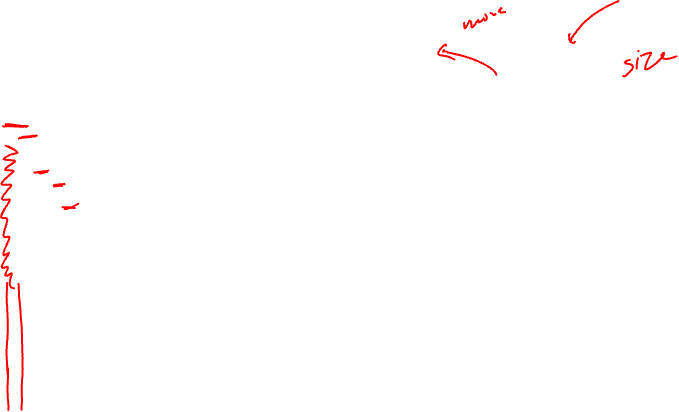 move
size